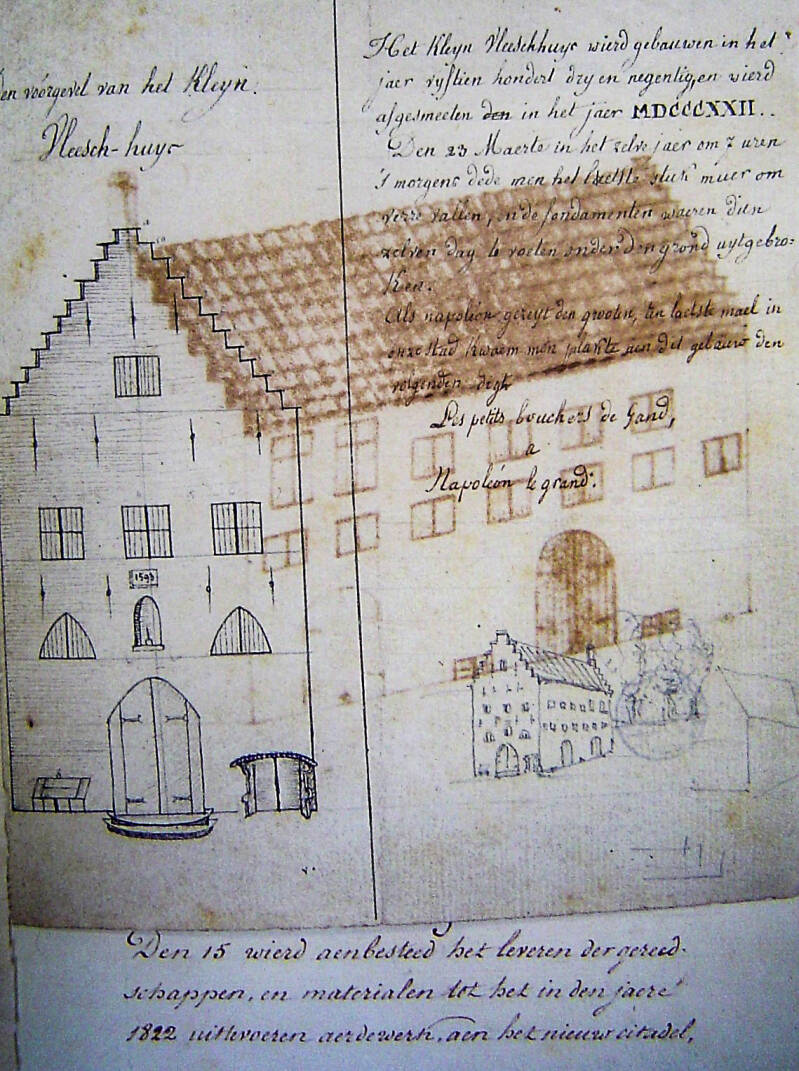 den voorgevel van het Kleyn.
Vleesch-huys
1593
Het Kleyn Vleeschhuys wierd gebauwen in het
jaer vyftien hondert dry en negentig, en wierd
afgesmeeten den in het jaer MDCCCXXII..
Den 23 Maerte in het zelve jaer om 7 uren
's morgens dede men het laetste stuk muer om
verre vallen, en de fondamenten waeren dien
zelven dag te voeten onder den grond uytgebro-
ken.
Als napoléon gezeyt den grooten, ten laetste mael in
onze stad kwaem men plakte aen dit gebauw den
volgenden
Les petits bouchers de Gand,
a
Napoléon le grand.
Den 15 wierd aenbesteed het leveren der gereed-
schappen, en materialen tot het in den jaere
1822 uittevoeren aerdewerk, aen het nieuw citadel,